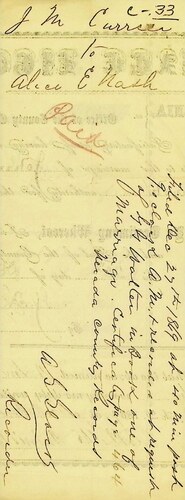 C-33
J M Currier
to
Alice E Nash
Paid
Filed Dec 27th 1869 at 40 min past
9 o'clock A.M. & recorded at request
of J. Walton in Book one of
Marriage Certificates page 164
Nevada County Records
Recorder